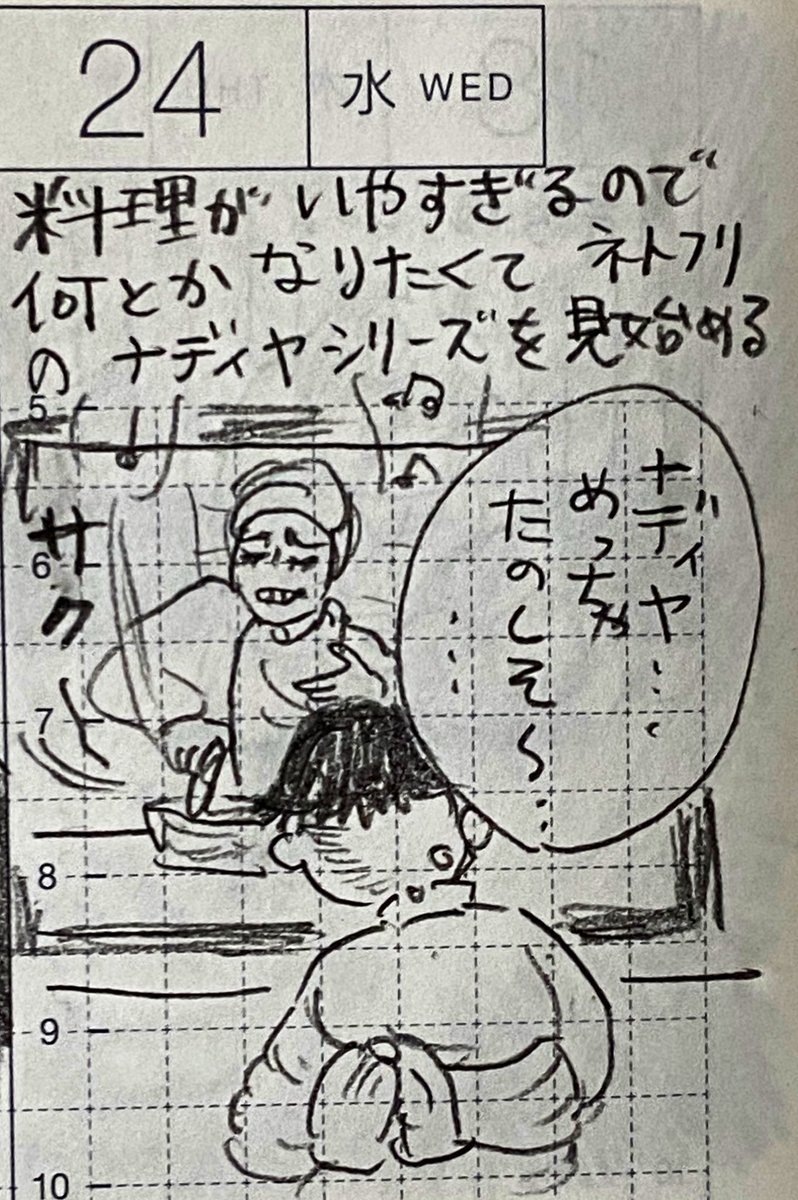 24
水 WED
料理が いやすぎるので
何とか なりたくて ネトフリ
の ナディヤシリーズを見始める
ナディヤ…
めっちゃ
たのしそ〜…
…
サク
5
6
7
8
9
10